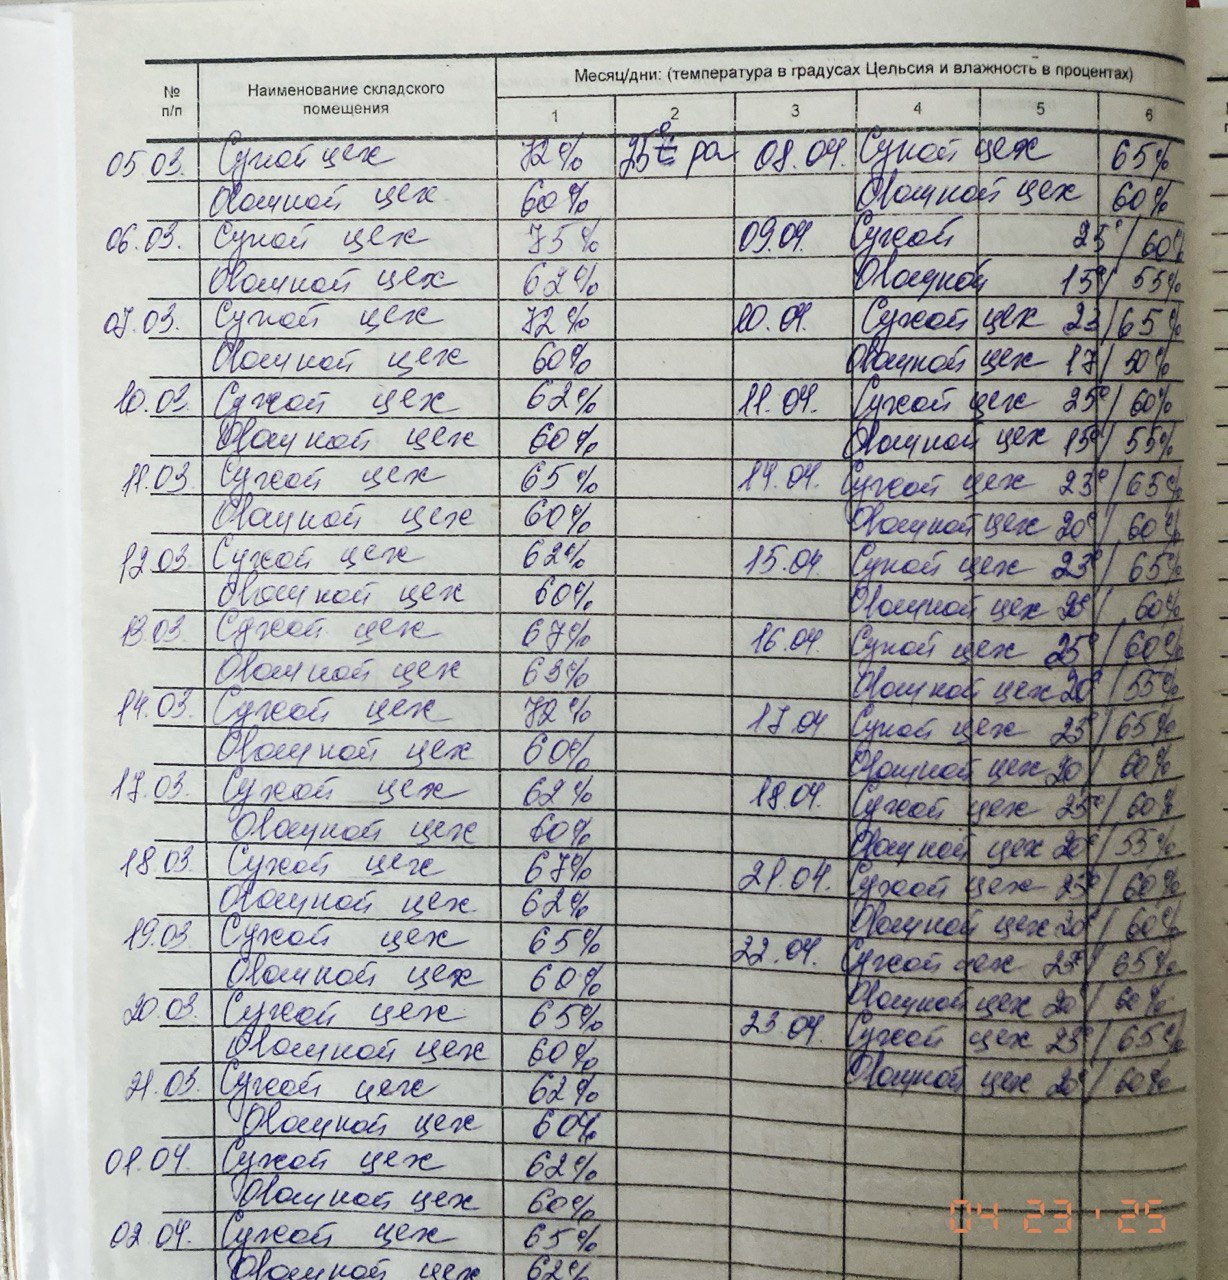 № п/п Наименование складского помещения Месяц/дни: (температура в градусах Цельсия и влажность в процентах)
1 2 3 4 5 6
05.03. Сухой цех 72% 25° 08.04. Сухой цех 65%
Овощной цех 60% Овощной цех 60%
06.03. Сухой цех 75% 09.04. Сухой 25°/60%
Овощной цех 62% Овощной 15°/55%
07.03. Сухой цех 72% 10.04. Сухой цех 23/65%
Овощной цех 60% Овощной цех 17/50%
10.03 Сухой цех 62% 11.04. Сухой цех 25°/60%
Овощной цех 60% Овощной цех 15°/55%
11.03. Сухой цех 65% 14.04. Сухой цех 23°/65%
Овощной цех 60% Овощной цех 20°/60%
12.03 Сухой цех 62% 15.04 Сухой цех 23°/65%
Овощной цех 60% Овощной цех /60%
13.03. Сухой цех 67% 16.04. Сухой цех 25°/60%
Овощной цех 63% Овощной цех 20°/55%
14.03. Сухой цех 72% 17.04 Сухой цех 23°/65%
Овощной цех 60% Овощной цех 20/60%
17.03. Сухой цех 62% 18.04. Сухой цех 25°/60%
Овощной цех 60% Овощной цех 20°/55%
18.03. Сухой цех 67% 21.04. Сухой цех 23°/60%
Овощной цех 62% Овощной цех 20°/60%
19.03 Сухой цех 65% 22.04. Сухой цех 23°/65%
Овощной цех 60% Овощной цех 20°/60%
20.03. Сухой цех 65% 23.04 Сухой цех 23°/65%
Овощной цех 60% Овощной цех 20°/60%
21.03. Сухой цех 62%
Овощной цех 60%
01.04. Сухой цех 62%
Овощной цех 60%
02.04. Сухой цех 65%
Овощной цех 62%
04 23 '25